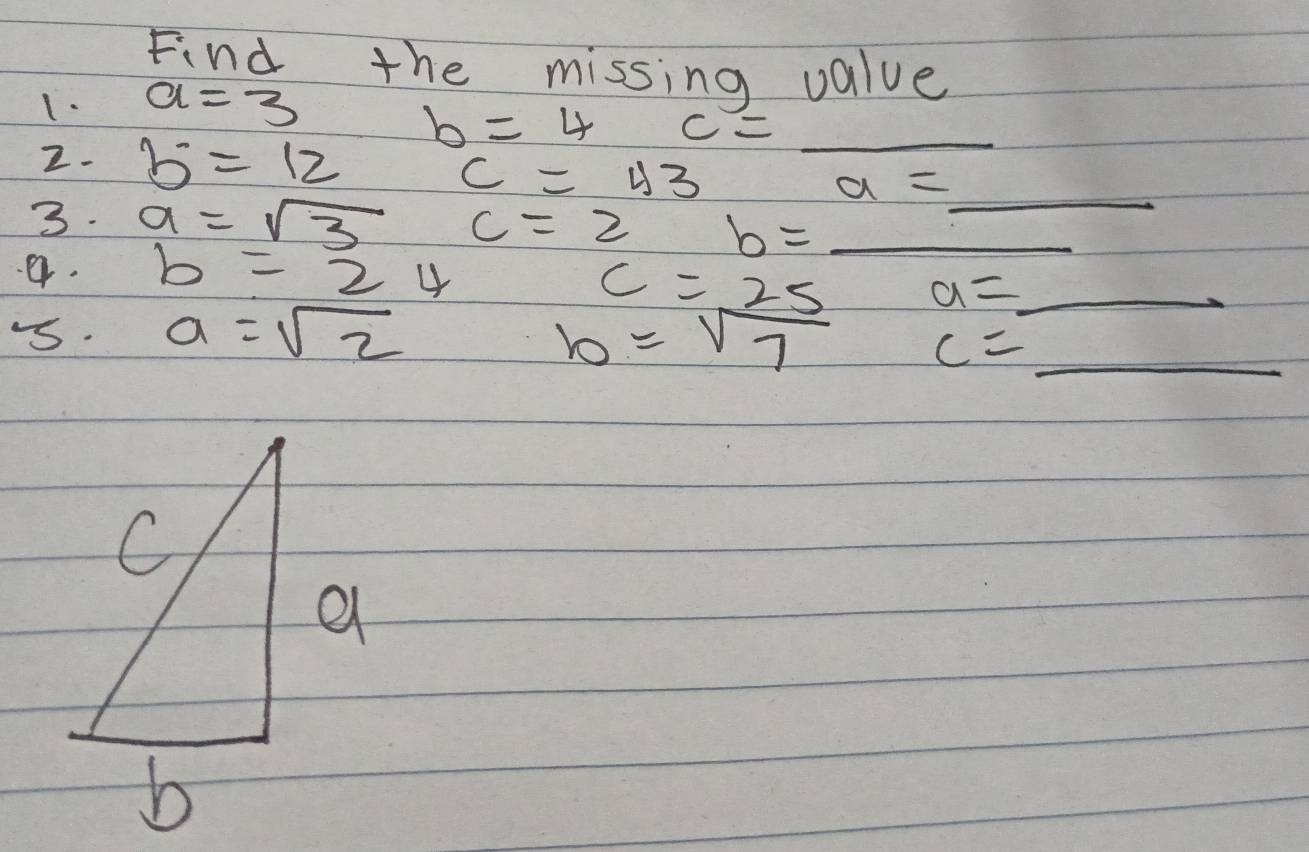 Find the missing value
1. a = 3 b = 4 c = ____
2. b = 12 c = 43 a = ____
3. a = √3 c = 2 b = ____
4. b = 24 c = 25 a = ____
5. a = √2 b = √7 c = ____
c
a
b